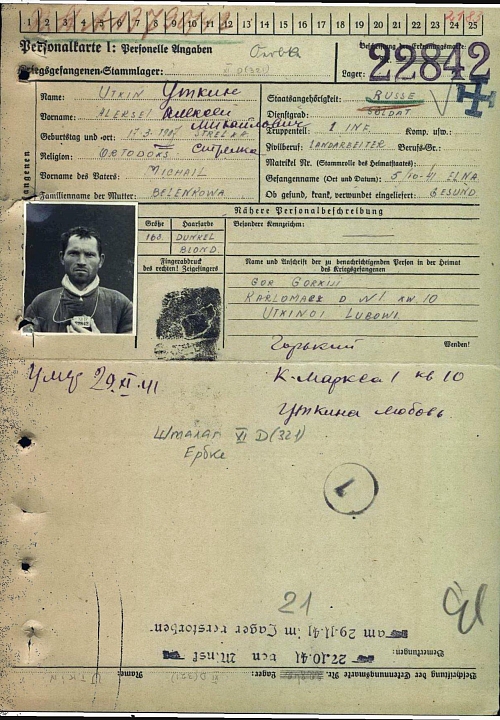 1 2 3 4 5 6 7 8 9 10 11 12 13 14 15 16 17 18 19 20 21 22 23 24 25
Personalkarte I: Personelle Angaben
Beschriftung der Erkennungsmarke
Kriegsgefangenen-Stammlager: VI D (321)
Lager: 22842
Name: UTKIN Уткин
Vorname: ALEKSEI Алексей Михайлович
Geburtstag und -ort: STRELKA Стрелка
Religion: ORTODOKS
Vorname des Vaters: MICHAIL
Familienname der Mutter: BELENKOWA
Staatsangehörigkeit: RUSSE
Dienstgrad: SOLDAT
Truppenteil: 2 INF. Komp. usw.:
Zivilberuf: LANDARBEITER Berufs-Gr.:
Matrikel Nr. (Stammrolle des Heimatstaates):
Gefangennahme (Ort und Datum): 5/10-41 ELNA
Ob gesund, krank, verwundet eingeliefert: GESUND
Nähere Personalbeschreibung
Größe Haarfarbe Besondere Kennzeichen:
168 DUNKEL BLOND
Fingerabdruck des rechten! Zeigefingers
Name und Anschrift der zu benachrichtigenden Person in der Heimat des Kriegsgefangenen
GOR GORKIJ
KARLOMARK D N1 KW.10
UTKINOI LUBOWI
Горький Wenden!
Умер 29 XI 41
К-Маркса 1 кв 10
Уткина Любовь
Шталаг VI D (321)
Ербке
21
am 29.11.41 im Lager verstorben
Bemerkungen:
27.10.41 von
Beschriftung der Erkennungsmarke Nr. Lager: Name:
UTKIN